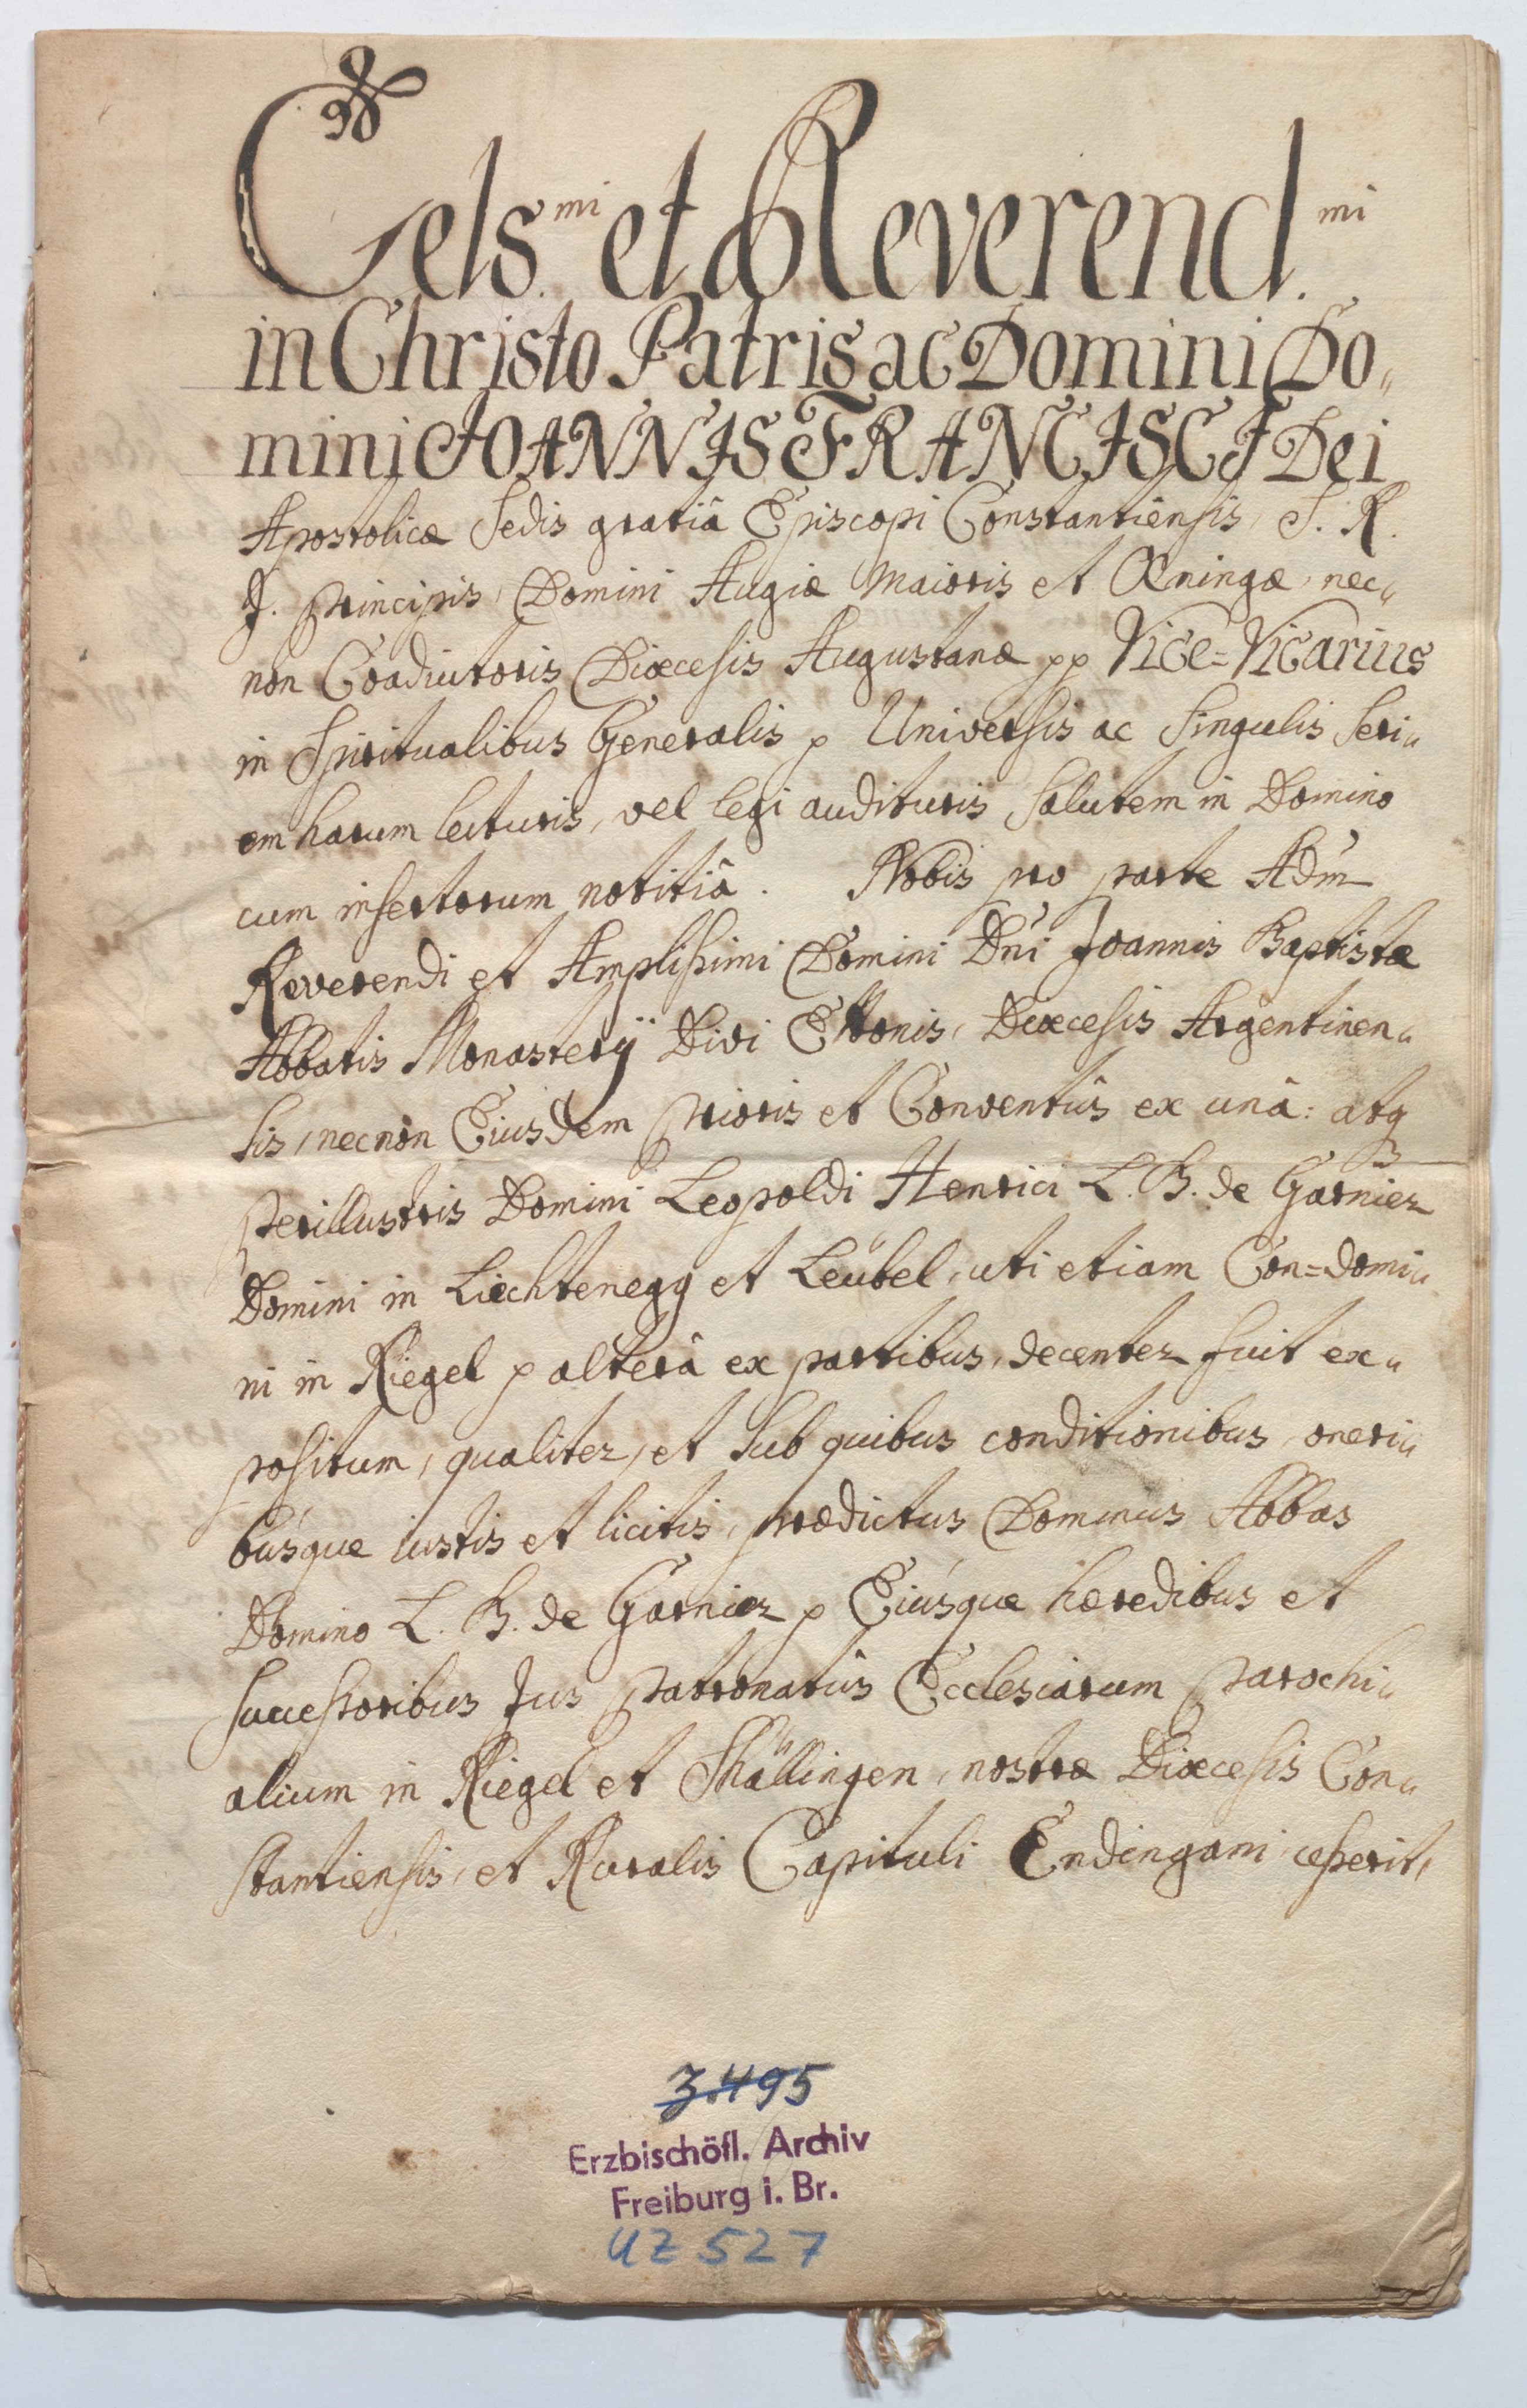 Cels.mi et Reverend.mi
in Christo Patris ac Domini Do„
mini JOANNIS FRANCISCI Dei
Apostolicæ Sedis gratiâ Episcopi Constantiensis, S. R.
J. Principis, Domini Augiæ Maioris et Œningæ, nec„
non Coadiutoris Diœcesis Augustanæ pp Vice=Vicarius
in Spiritualibus Generalis p Universis ac Singulis Seri„
em harum lecturis, vel legi audituris Salutem in Domino
cum insertorum notitiâ. Nobis pro parte Adm
Reverendi et Amplissimi Domini Dni Joannis Baptistæ
Abbatis Monasterÿ Divi Ettonis, Diœcesis Argentinen„
sis, necnon Eiusdem Prioris et Conventûs ex unâ: atq
Perillustris Domini Leopoldi Henrici L. B. de Garnier
Domini in Liechtenegg et Leübel, uti etiam Con=domi„
ni in Riegel p alterâ ex partibus, decenter fuit ex„
positum, qualiter, et sub quibus conditionibus, oneri„
búsque iustis et licitis, prædictus Dominus Abbas
Domino L. B. de Garnier p Eiúsque hæredibus et
successoribus Jus Patronatûs Ecclesiarum Parochi„
alium in Riegel et Shällingen, nostræ Diœcesis Con„
stantiensis, et Ruralis Capituli Endingani, cesserit,
3.495
Erzbischöfl. Archiv
Freiburg i. Br.
UZ 527